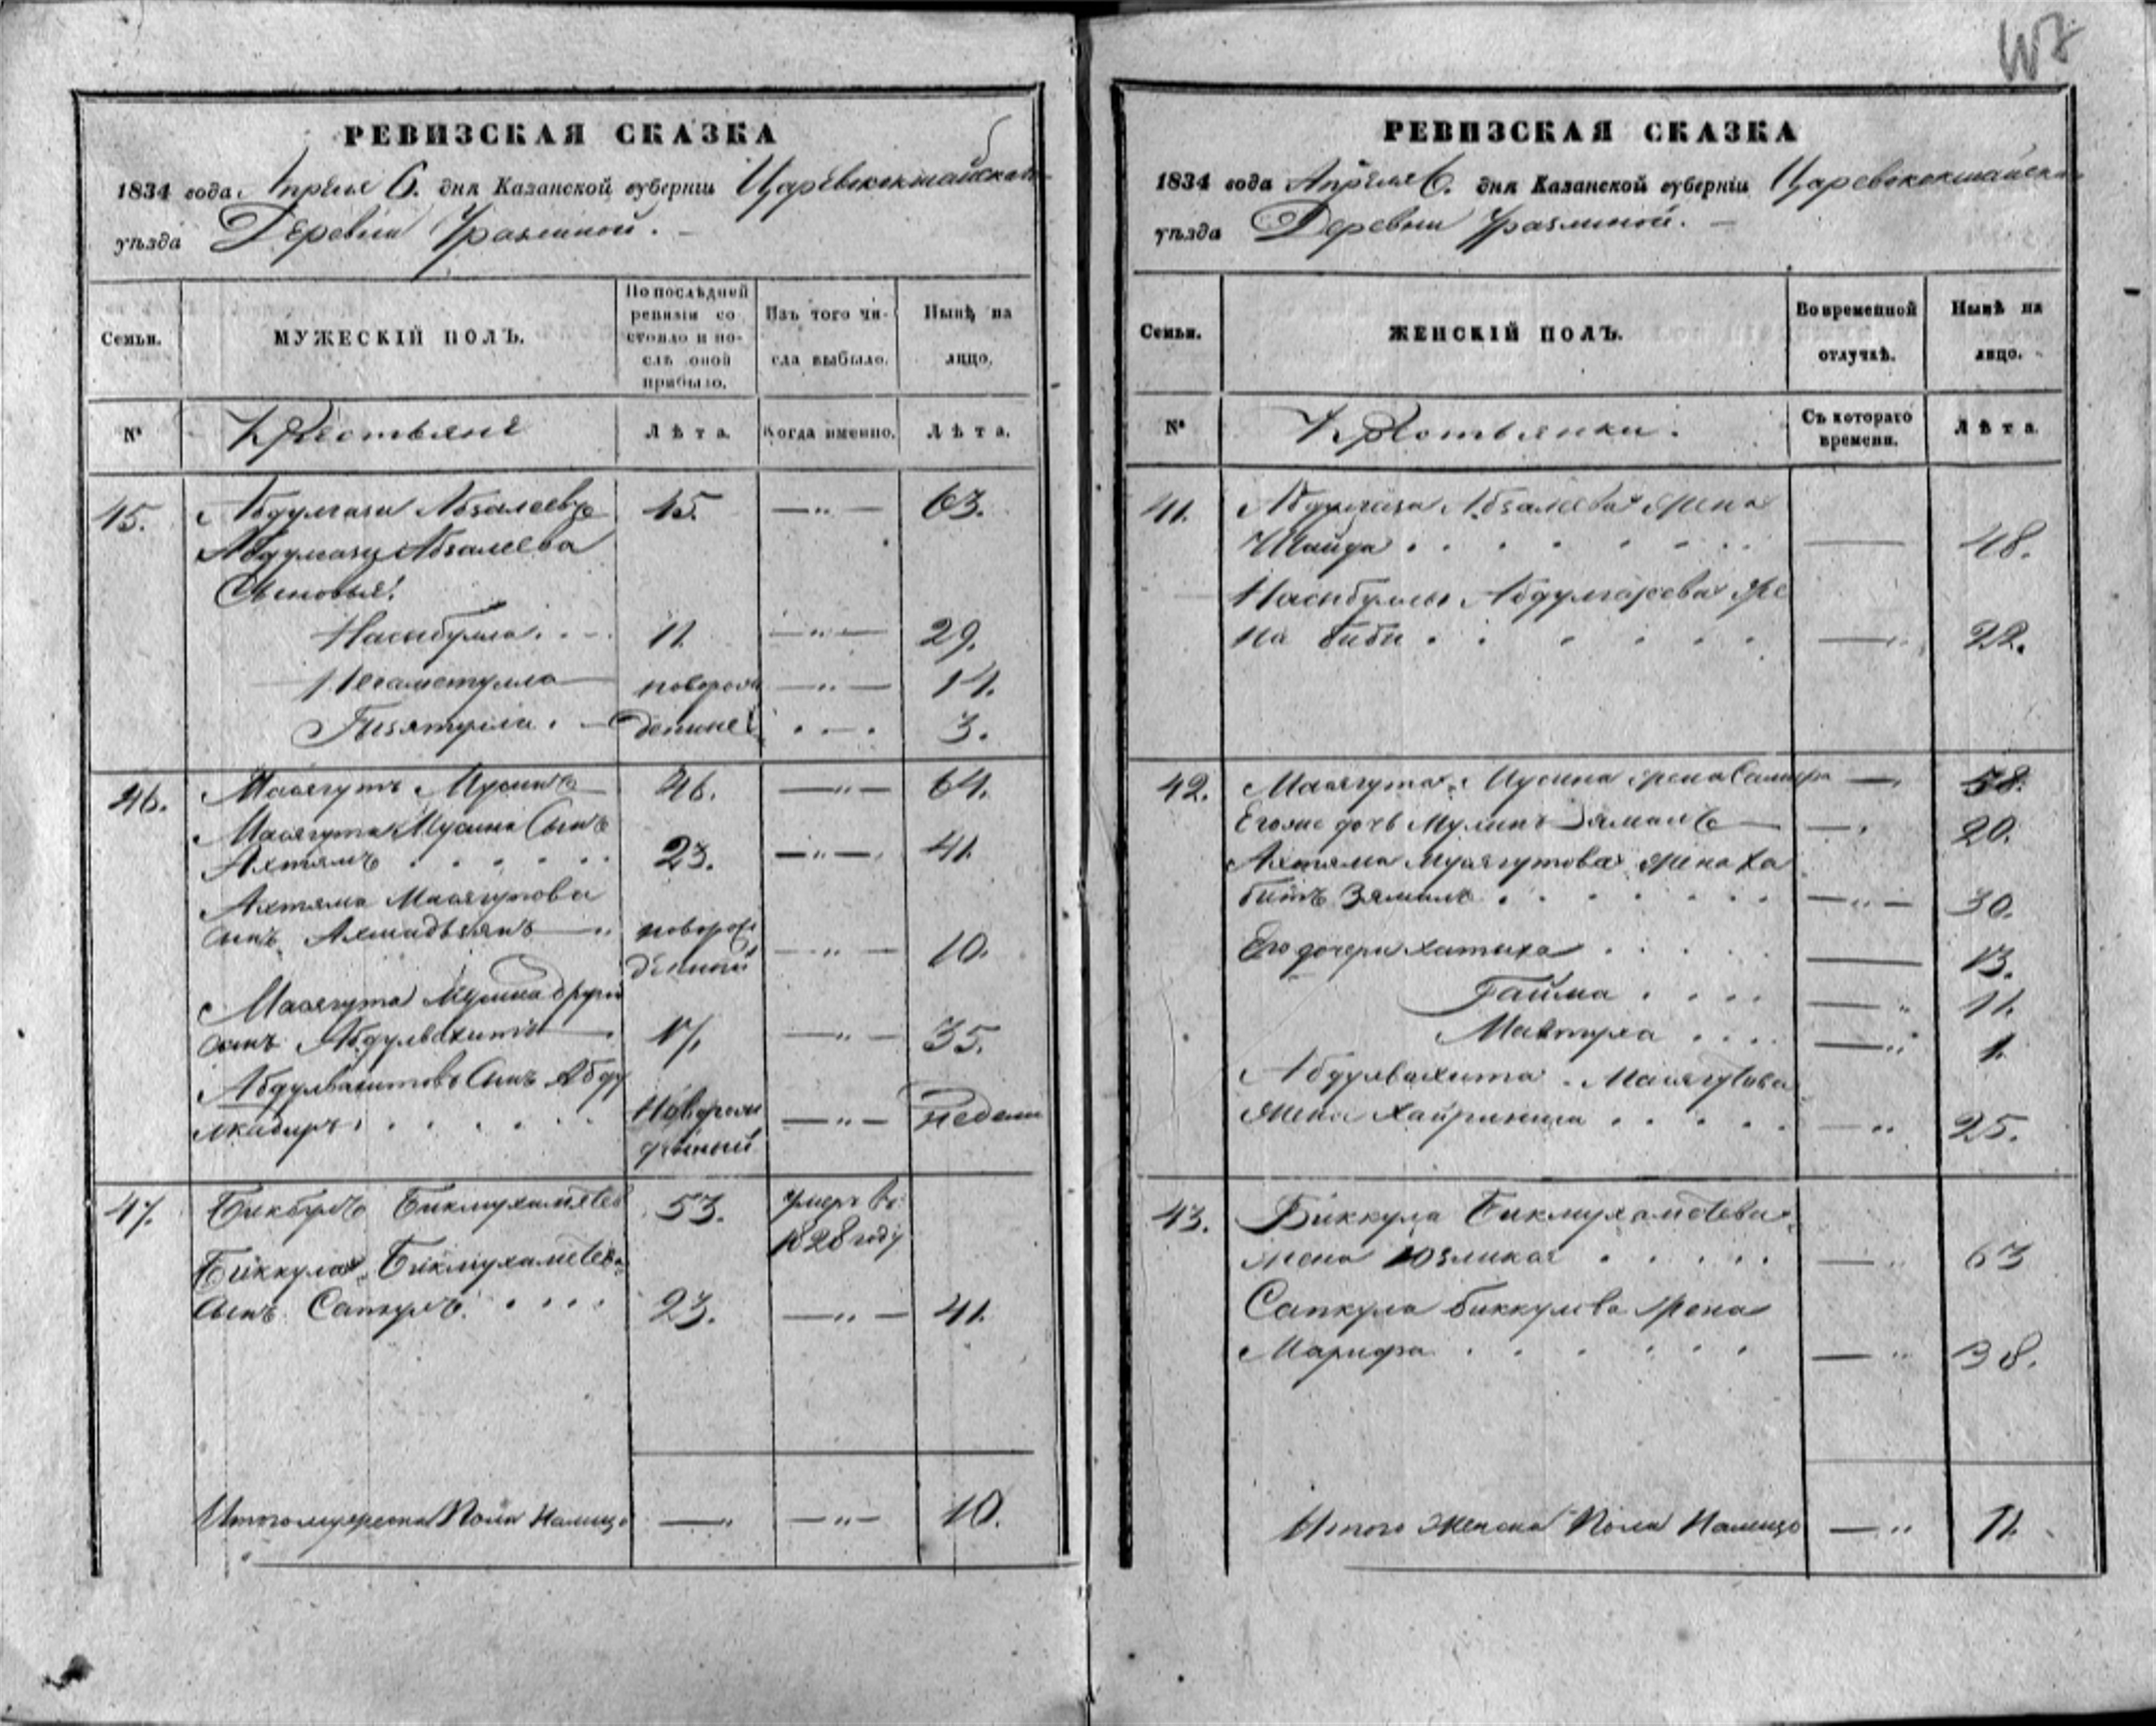 РЕВИЗСКАЯ СКАЗКА
1834 года Апреля 6. дня Казанской губерніи Царевококшайскаго
уѣзда Деревни Уразлиной.
Семьи.
МУЖЕСКІЙ ПОЛЪ.
По послѣдней ревизіи состояло и послѣ оной прибыло.
Изъ того числа выбыло.
Нынѣ на лицо.
№
Крестьяне
Лѣта.
Когда именно.
Лѣта.
45. Абдулгази Абзалеевъ 45. —„— 63.
Абдулгази Абзалеева
Сыновья:
Насибулла. 11. —„— 29.
Незаметулла новорож —„— 14.
Гизятулла. денные 3.
46. Масягутъ Мусинъ 46. —„— 64.
Масягута Мусина Сынъ
Ахтямъ 23. —„— 41.
Ахтяма Масягутова
сынъ Ахмадьзянъ новорож
денный —„— 10.
Масягута Мусина другой
сынъ Абдулвахитъ 17. —„— 35.
Абдулвахитовъ Сынъ Абду
лкабиръ Новорож —„— недели
денный
47. Бикбулъ Бикмухаметев 53. умеръ въ
1828 году
Биккула Бикмухаметева
Сынъ Сапкулъ. 23. —„— 41.
Итого мужеска Пола Налицо —„ —„— 10.
РЕВИЗСКАЯ СКАЗКА
1834 года Апреля 6. дня Казанской губерніи Царевококшайскаго
уѣзда Деревни Уразлиной.
Семьи.
ЖЕНСКІЙ ПОЛЪ.
Во временной отлучкѣ.
Нынѣ на лицо.
№
Крестьянки.
Съ котораго времени.
Лѣта.
41. Абдулгази Абзалеева жена
Шайда — 48.
Насибуллы Абдулгазеева же
на Биби —„ 22.
42. Масягута Мусина жена — 58.
Егоже дочь — 20.
Ахтяма Мусягутова жена Ха
—„— 30.
Его дочери Хатиха — 13.
Гайма —„ 11.
Мавтуха —„ 1.
Абдулвахита Масягутова
жена —„ 25.
43. Биккула Бикмухаметева
жена Юзликая —„ 63
Сапкула Биккулова жена
Марифа —„ 38.
Итого Женска Пола Налицо —„ 11.